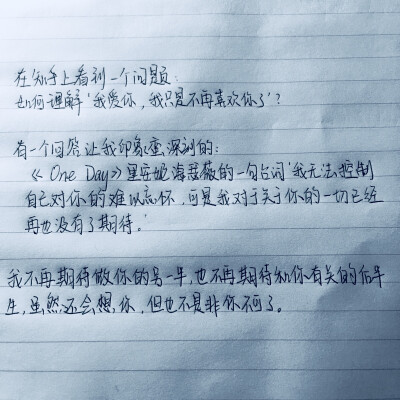 在知乎上看到一个问题：
如何理解‘我爱你，我只是不再喜欢你了’？
有一个回答让我印象蛮深刻的：
《One Day》里安妮海瑟薇的一句台词‘我无法控制
自己对你的难以忘怀，可是我对于关于你的一切已经
再也没有了期待。’
我不再期待做你的另一半，也不再期待和你有关的后半
生，虽然还会想你，但也不是非你不可了。